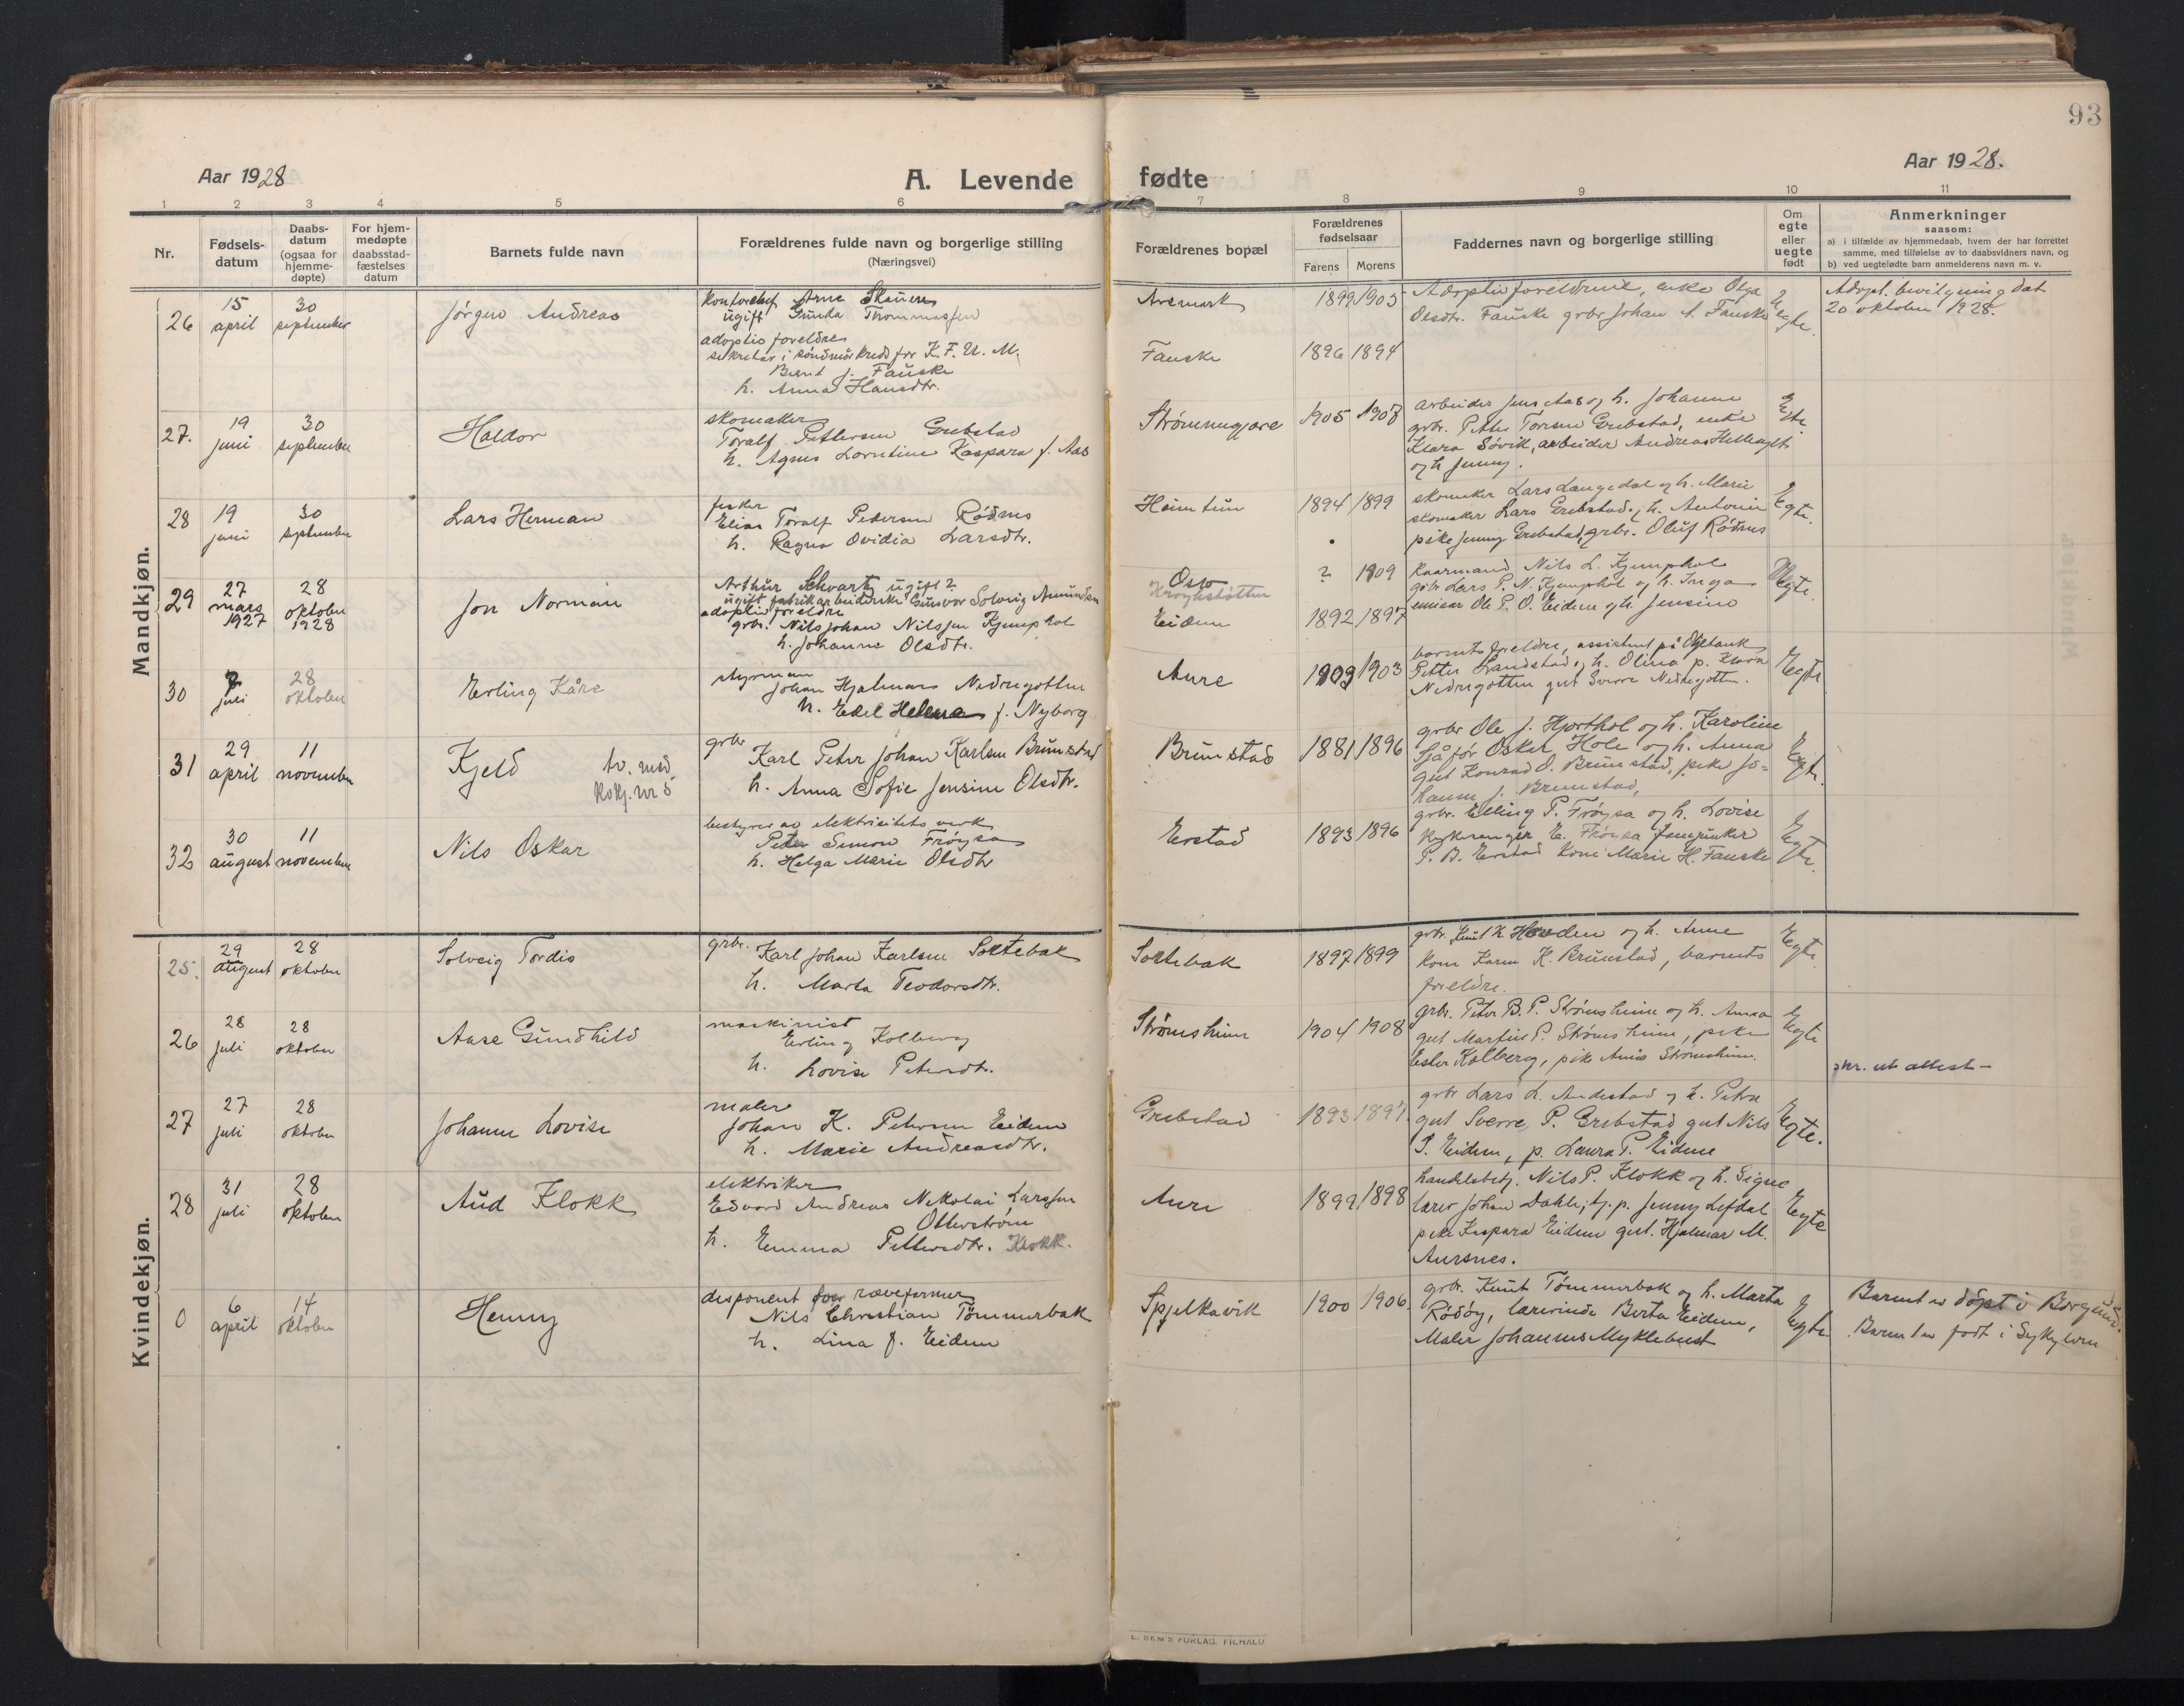 93
Aar 1928
A. Levende fødte
Aar 1928.
1 2 3 4 5 6 7 8 9 10 11
Nr.
Fødsels-
datum
Daabs-
datum
(ogsaa for
hjemme-
døpte)
For hjem-
medøpte
daabsstad-
fæstelses
datum
Barnets fulde navn
Forældrenes fulde navn og borgerlige stilling
(Næringsvei)
Forældrenes bopæl
Forældrenes
fødselsaar
Farens Morens
Faddernes navn og borgerlige stilling
Om
egte
eller
uegte
født
Anmerkninger
saasom:
a) i tilfælde av hjemmedaab, hvem der har forrettet
samme, med tilføielse av to daabsvidners navn, og
b) ved uegtefødte barn anmelderens navn m. v.
Mandkjøn.
26
15 april
30 september
Jörgen Andreas
Arne
ugift Thommassen
adoptivforeldre
sekretær i for K. F. U. M.
Bernt J. Fauske
h. Anna Hansdtr.
Aremark
1899 1905
Fauske
1896 1894
Adoptivforeldrene, enke Olga
Olsdtr. Fauske grbr Johan A. Fauske
Adopt. bevilgning dat
20 oktober 1928.
27.
19 juni
30 september
Haldor
skomaker
Toralf Pettersen Grebstad
h. Agnes Lorntine Kaspara f. Aas
1905 1908
arbeider Jens Aas og h. Johanne
grbr. Petter Toresen Grebstad, enke
Klara Søvik, arbeider Andreas
og h Jenny.
Egte.
28
19 juni
30 september
Lars Herman
fisker
Elias Toralf Pedersen Rödnes
h. Ragna Ovidia Larsdtr.
Heimtun
1894 1899
skomaker Lars Langedal og h. Marie
skomaker Lars Grebstad og h. Antonie
pike Jenny Grebstad, grbr. Oluf Rödnes
Egte.
29
27 mars 1927
28 oktober 1928
Jon Norman
Arthur Schvartz ugift?
ugift fabrikarbeiderske Gunvor Solveig Amundsen
adoptivforeldre
grbr. Nils Johan Nilssen Kjemphol
h. Johanne Olsdtr.
Oslo
? 1909
Eidem
1892 1897
Kaarmand Nils L. Kjemphol
grbr Lars P. N. Kjemphol og h. Inga
emisær Ole P. O. Eidem og h. Jensine
Uegte.
30
juli
28 oktober
Erling Kåre
styrman
Johan Hjalmar Nedregotten
h. Edel Helena f. Nyborg
Aure
1903
barnets foreldre, assistent på
Petter Sandstad og h. Olina p. Klara
Nedregotten gut Sverre Nedregotten.
Egte
31
29 april
11 november
Kjeld
tv. med
Kvkj. nr 5
grbr
Karl Peter Johan Karlsen Brunstad
h. Anna Sofie Jensine Olsdtr.
Brunstad
1881 1896
grbr Ole J. Hjorthol og h. Karoline
Sjåfør Oskar Hole og h. Anna
gut Konrad O. Brunstad, pike Jo-
hanne J. Brunstad,
Egte.
32
30 august
11 november
Nils Oskar
bestyrer av elektricitets verk
Peter Simon Fröysa
h. Helga Marie Olsdtr
Erstad
1893 1896
grbr. Elling P. Fröysa og h. Lovise
kirkesanger E. Fröysa
P. B. Erstad kone Marie H. Fauske
Egte.
Kvindekjøn.
25.
29 august
28 oktober
Solveig Tordis
grbr. Karl Johan Karlsen Soltebak
h. Marta Teodorsdtr.
Soltebak
1897 1899
grbr. Knut K. Hovden og h. Anne
kone Karen K. Brunstad, barnets
foreldre.
Egte.
26
28 juli
28 oktober
Aase Gundhild
maskinist
Erling Kolberg
h. Lovise Petersdtr.
Strømsheim
1904 1908
grbr. Peter B. P. Strømsheim og h. Anna
gut Martin P. Strømsheim, pike
Ester Kolberg, pike Anna Strømsheim.
Egte
skr. ut attest –
27
27 juli
28 oktober
Johanne Lovise
maler
Johan K. Petersen Eidem
h. Marie Andreasdtr.
Grebstad
1893 1897.
grbr Lars L. Andestad og h. Petra
gut Sverre P. Grebstad gut Nils
P. Eidem, p. Laura P. Eidem
Egte.
28
31 juli
28 oktober
Aud Klokk
elektriker
Edvard Andreas Nikolai Larssen
Otterstrøm
h. Emma Pettersdtr. Klokk.
Aure
1899 1898
handelsbetj. Nils P. Klokk og h. Signe
lærer Johan Dahle, tj. p. Jenny Lefdal
pike Kaspara Eidem gut. Hjalmar M.
Aursnes.
Egte
0
6 april
14 oktober
Henny
disponent for rævefarmer
Nils Christian Tømmerbak
h. Lina f. Eidem
Spjelkavik
1900 1906.
grbr. Knut Tømmerbak og h. Marta
Rödöy, lærerinde Berta Eidem,
Maler Johannes Myklebust
Egte
Barnet er döpt i Borgund.
Barnet er födt i Sykylven
L. SEM'S FORLAG, FR.HALD